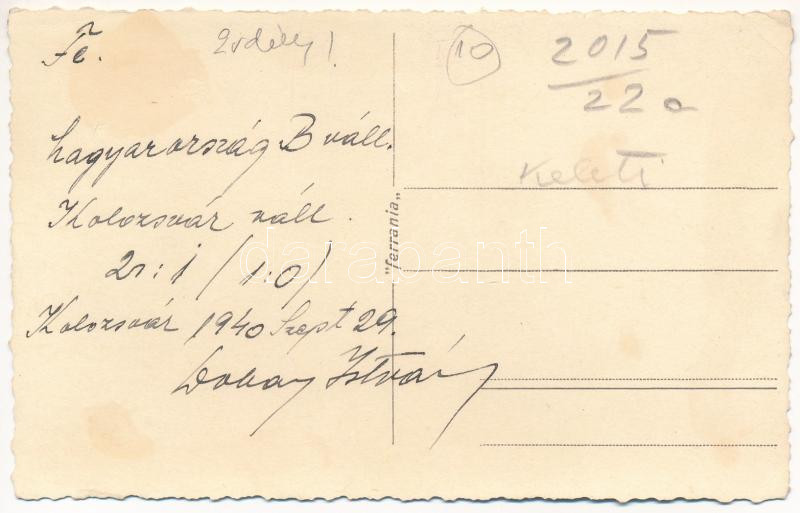 Fé.
Erdély!
10
2015
22a
Keleti
Magyarország B váll.
Kolozsvár váll.
2:1 (1:0)
Kolozsvár 1940 Szept 29.
Dobay István
"ferrania"
darabanth